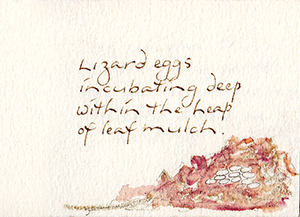 Lizard eggs
incubating deep
within the heap
of leaf mulch.